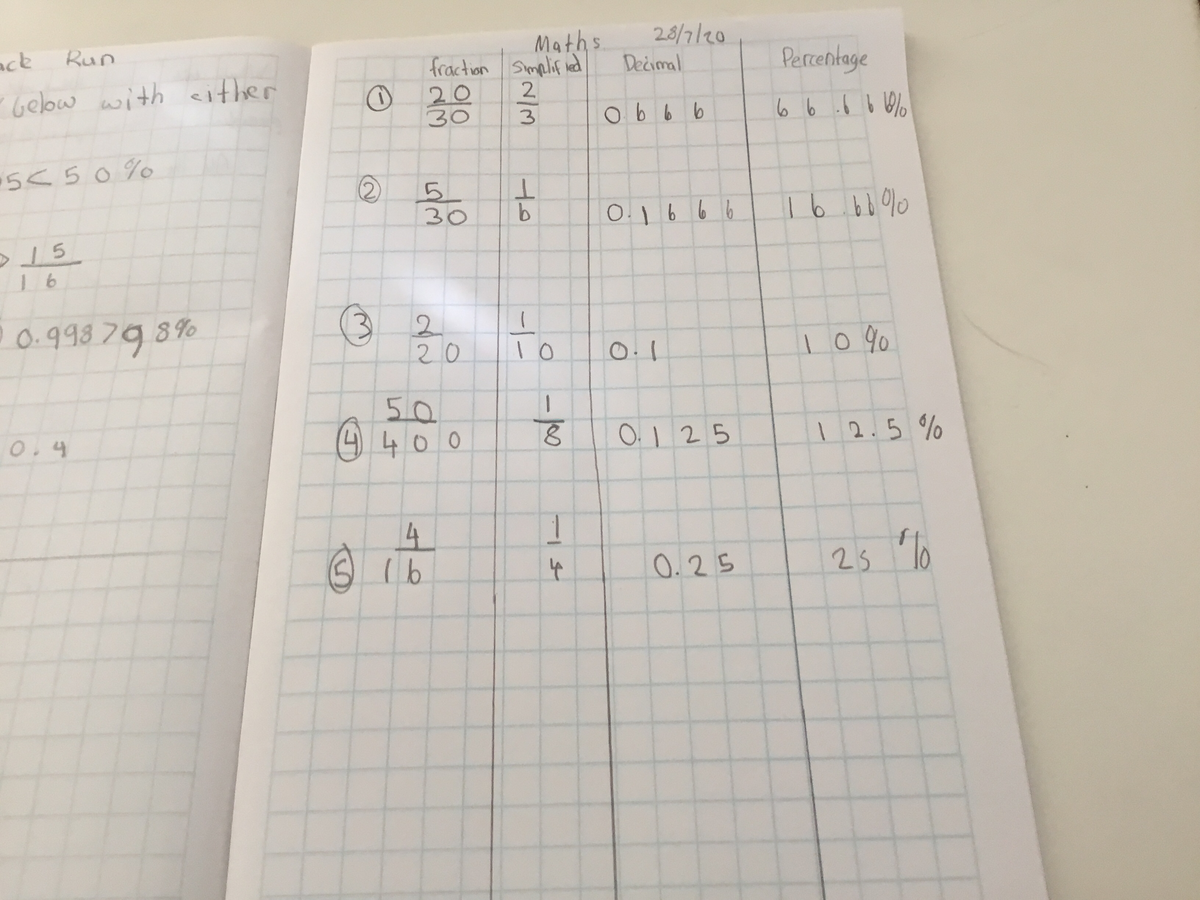 ack Run
below with either
5 < 50%
15
16
0.998 > 98%
0.4
Maths 28/7/20
fraction simplified Decimal Percentage
① 20/30 2/3 0666 66.666%
② 5/30 1/6 0.1666 16.66%
③ 2/20 1/10 0.1 10%
④ 50/400 1/8 0.125 12.5%
⑤ 4/16 1/4 0.25 25%